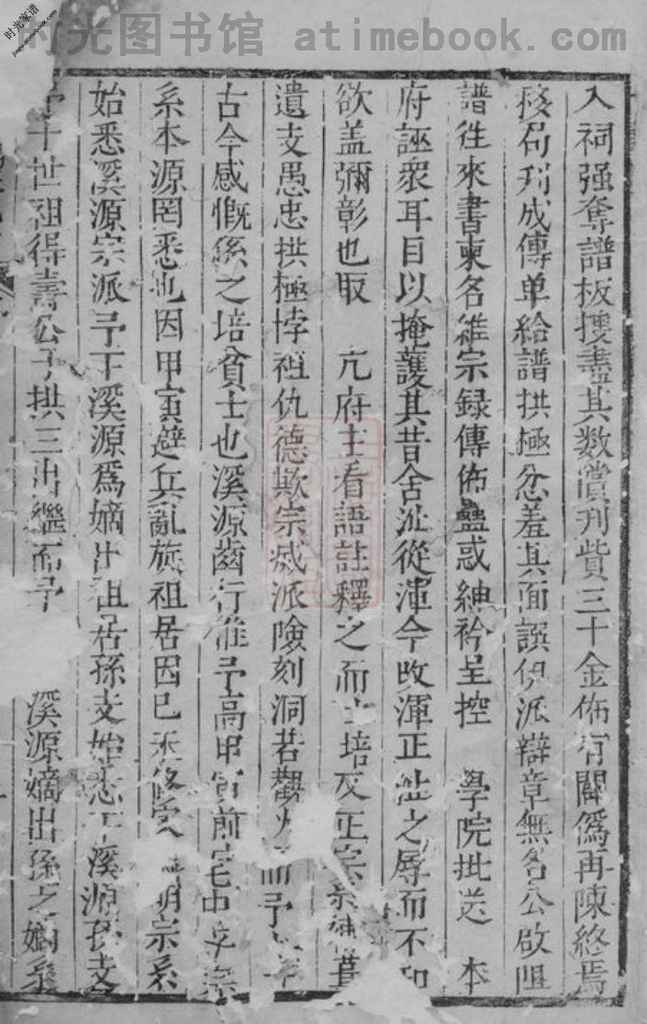 时光图书馆 atimebook.com
时光家谱
入祠强奪譜板搜盡其数償刊貲三十金佈有闗為再陳終焉
刊成傳单給譜拱極忿羞其面誤伊派辯章無名公啟阻
譜徃來書柬名維宗録傳佈蠱惑紳衿呈控 學院批送 本
府誣衆耳目以掩護其昔舍沚從渾今改渾正沚之辱而不知
欲盖彌彰也取 亢府主看語註釋之而 培反正宗
遺支愚忠拱極悖祖仇德欺宗滅派險刻洞若觀火而予
古今感慨係之培貧士也溪源齒行准予高甲 前宅中
系本源罔悉也因甲寅避兵亂旋祖居因巳 修 明宗系
始悉溪源宗派予于溪源為嫡出祖居孫支始悉于溪源 支
予十世祖得壽公子拱三出繼而予 溪源嫡出孫之嫡系